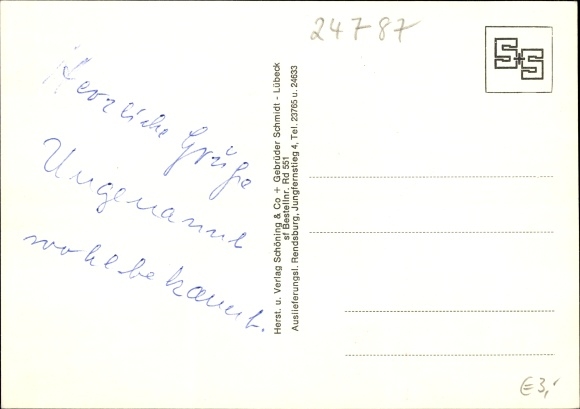 24787
S+S
Herzliche Grüße
Ungenannt
wohlbekannt.
Herst. u. Verlag Schöning & Co + Gebrüder Schmidt - Lübeck
sf Bestellnr. Rd 551
Auslieferungsl. Rendsburg, Jungfernstieg 4, Tel. 23765 u. 24633
€3,-